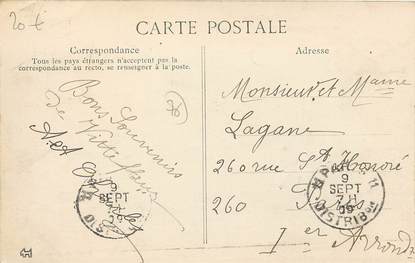 20 €
CARTE POSTALE
Correspondance
Tous les pays étrangers n'acceptent pas la
correspondance au recto, se renseigner à la poste.
Adresse
Bons Souvenirs
de
Monsieur et Mame
Lagane
260 rue St Honoré
260 Paris
Ier Arrondt
9
SEPT
DISTRIB
PARIS
11
9
SEPT
09
DISTRIBon